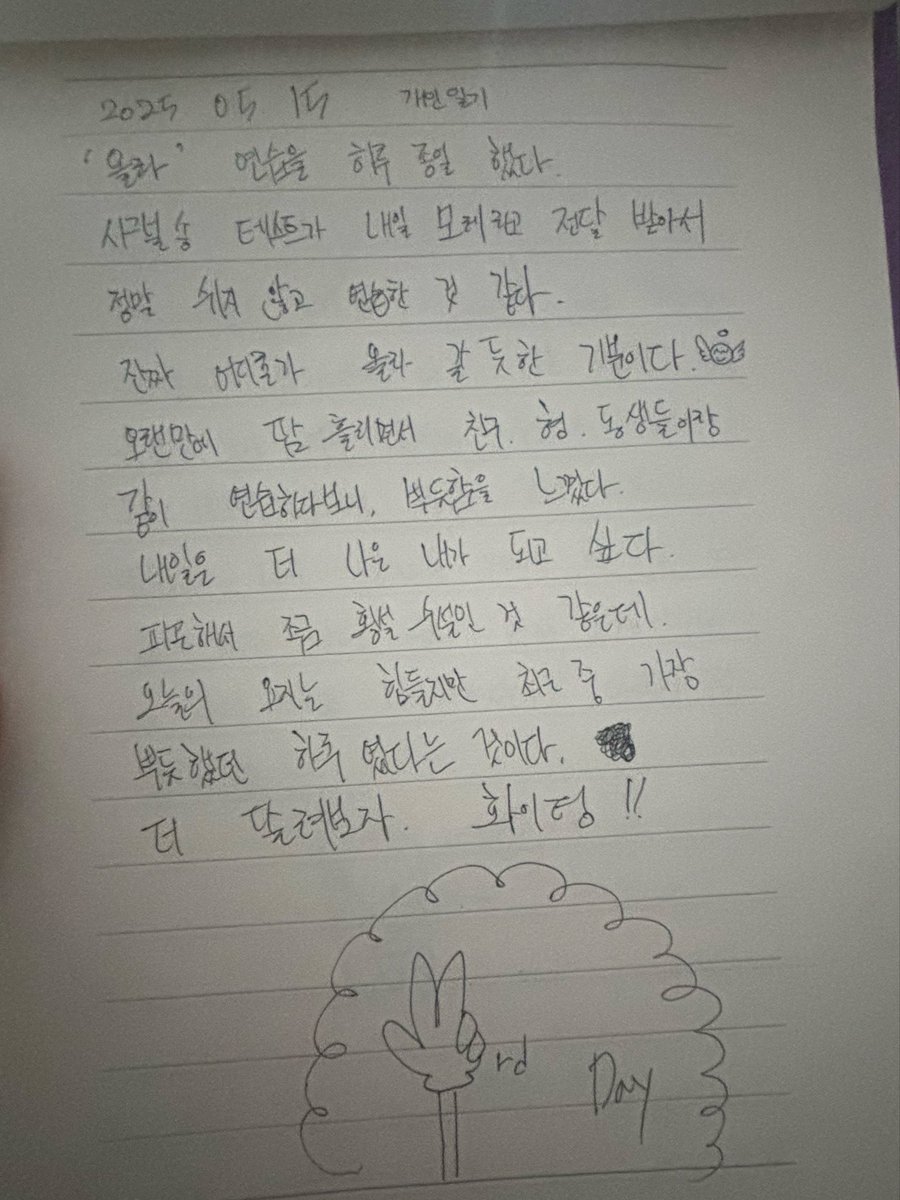 2025 05 15 개인일기
'올라' 연습을 하루 종일 했다.
시그널송 테스트가 내일 모레라고 전달 받아서
정말 쉬지 않고 연습한 것 같다.
진짜 어디론가 올라 갈 듯한 기분이다.
오랜만에 땀 흘리면서 친구. 형. 동생들이랑
같이 연습하다보니, 뿌듯함을 느꼈다.
내일은 더 나은 내가 되고 싶다.
피곤해서 조금 횡설 수설인 것 같은데.
오늘의 요지는 힘들지만 최근 중 가장
뿌듯했던 하루 였다는 것이다.
더 달려보자. 화이팅!!
rd Day